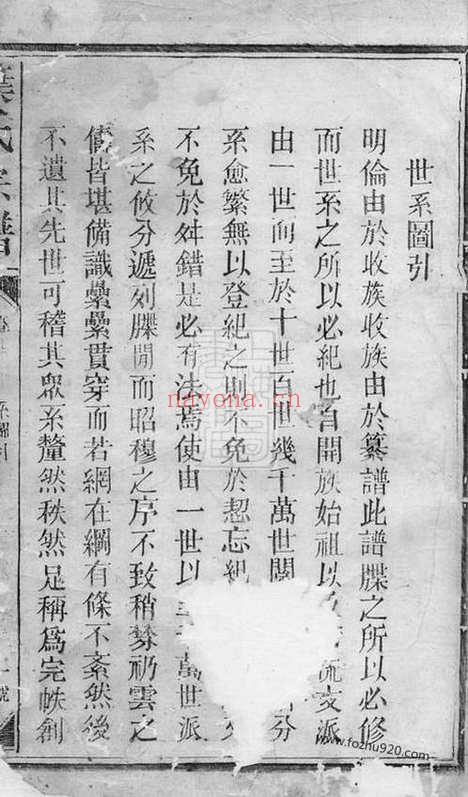 世系圖引
明倫由於收族收族由於纂譜此譜牒之所以必修
而世系之所以必紀也自開族始祖以流支派
由一世而至於十世百世幾千萬世閱分
系愈繁無以登紀之則不免於恝忘紀
不免於舛錯是必有法焉使由一世以至萬世派
系之攸分遞列牒間而昭穆之序不致稍棼礽雲之
儔皆堪備識纍纍貫穿而若網在綱有條不紊然後
不遺其先世可稽其眾系釐然秩然足稱為完帙創
氏宗譜
系圖引
nayona.cn
www.fozhu920.com